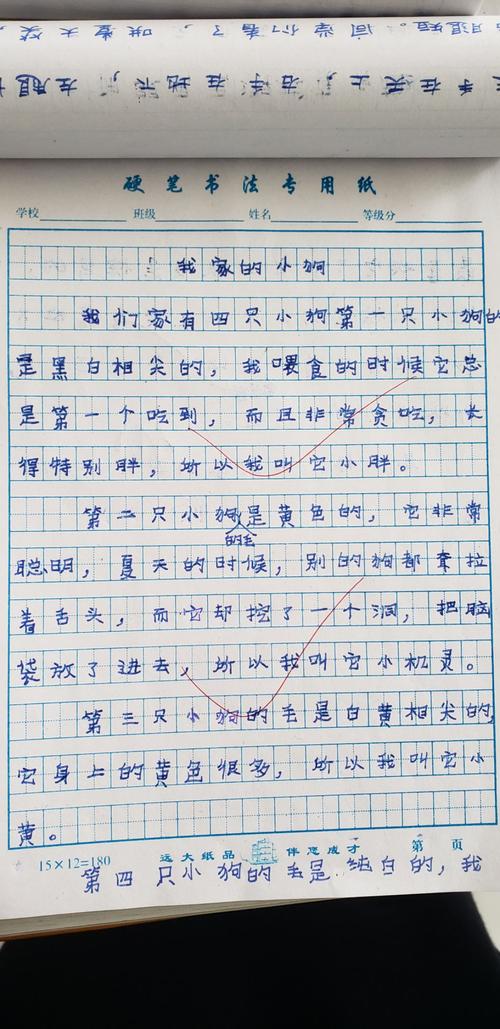 硬笔书法专用纸
学校 班级 姓名 等级分
我家的小狗
我们家有四只小狗第一只小狗的
是黑白相尖的，我喂食的时候它总
是第一个吃到，而且非常贪吃，长
得特别胖，所以我叫它小胖。
第二只小狗是黄色的，它非常
的毛
聪明，夏天的时候，别的狗都耷拉
着舌头，而它却挖了一个洞，把脑
袋放了进去，所以我叫它小机灵。
第三只小狗的毛是白黄相尖的，
它身上的黄色很多，所以我叫它小
黄。
15×12=180 远大纸品 伴您成才 第 页
第四只小狗的毛是纯白的，我